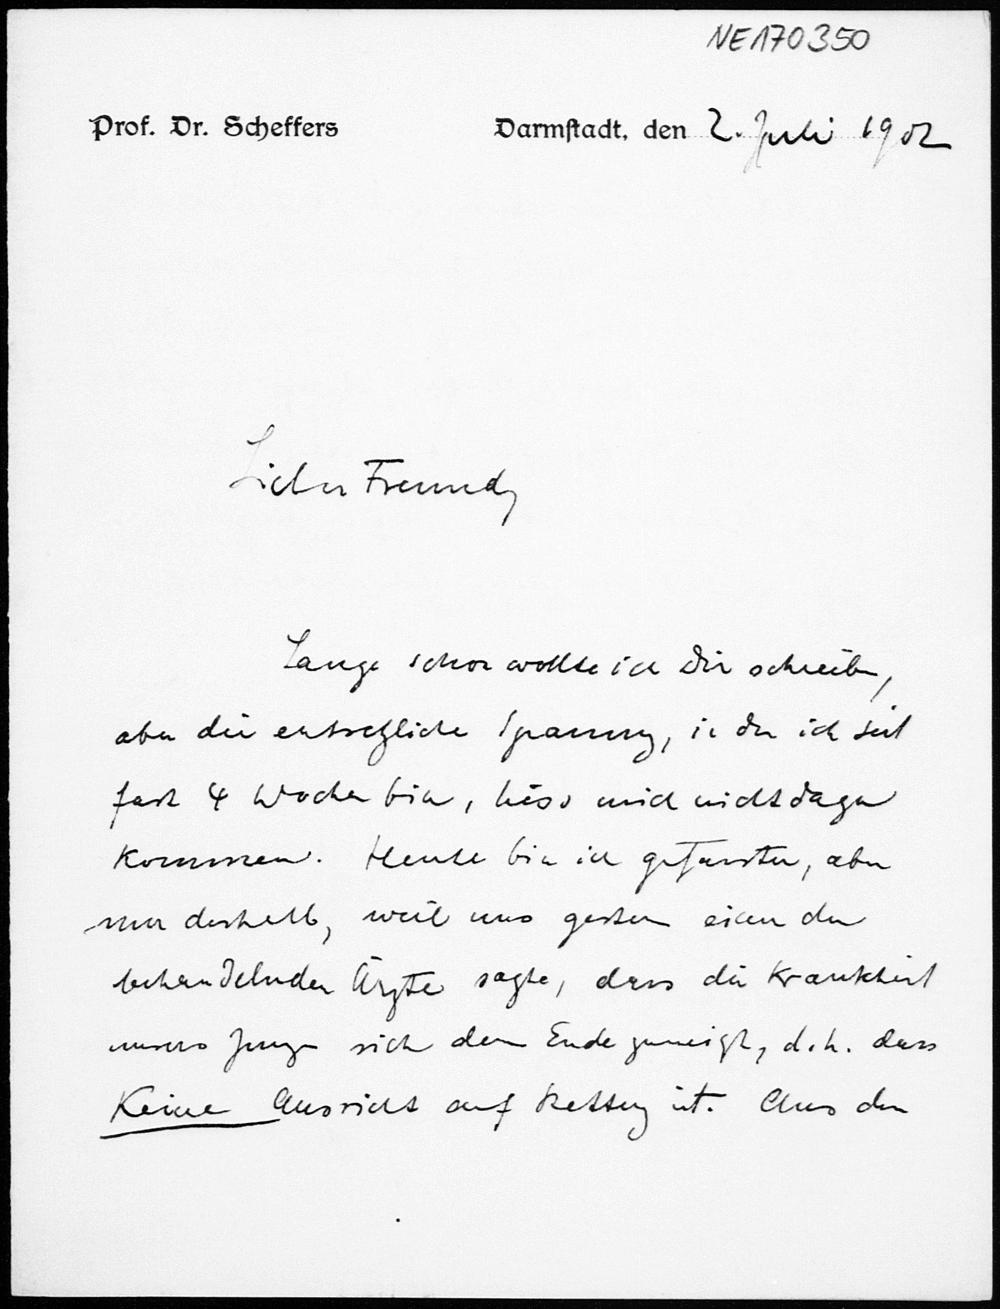 NE170350
Prof. Dr. Scheffers Darmstadt, den 2. Juli 1902
Lieber Freund,
Lange schon wollte ich Dir schreiben,
aber die entsetzliche Spannung, in der ich seit
fast 4 Wochen bin, liess mich nicht dazu
kommen. Heute bin ich gefasster, aber
nur deshalb, weil uns gestern einer der
behandelnden Ärzte sagte, dass die Krankheit
unseres Jungen sich dem Ende zuneigt, d.h. dass
keine Aussicht auf Rettung ist. Aus der